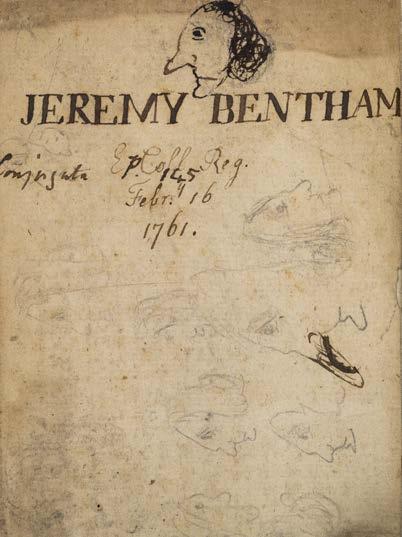 JEREMY BENTHAM
Conjugata E Coll. Reg.
p. 145
Febr.y 16
1761.